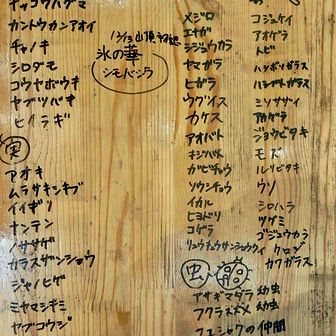 カントウカンアオイ
チャノキ
シロダモ
コウヤボウキ
ヤブツバキ
ヒイラギ
実
アオキ
ムラサキシキブ
イイギリ
ナンテン
ノササゲ
カラスザンショウ
ジャノヒゲ
ミヤマシキミ
ヤブコウジ
12/13 山頂
氷の華
シモバシラ
メジロ
エナガ
シジュウカラ
ヤマガラ
ヒガラ
ウグイス
カケス
アオバト
キジバト
ガビチョウ
ソウシチョウ
イカル
ヒヨドリ
コゲラ
リュウキュウサンショウクイ
コジュケイ
アオゲラ
トビ
ハシボソガラス
ハシブトガラス
ミソサザイ
アカゲラ
ジョウビタキ
モズ
ルリビタキ
ウソ
シロハラ
ツグミ
ゴジュウカラ
クロジ
カワガラス
虫
アサギマダラ 幼虫
フクラスズメ 幼虫
フユシャクの仲間